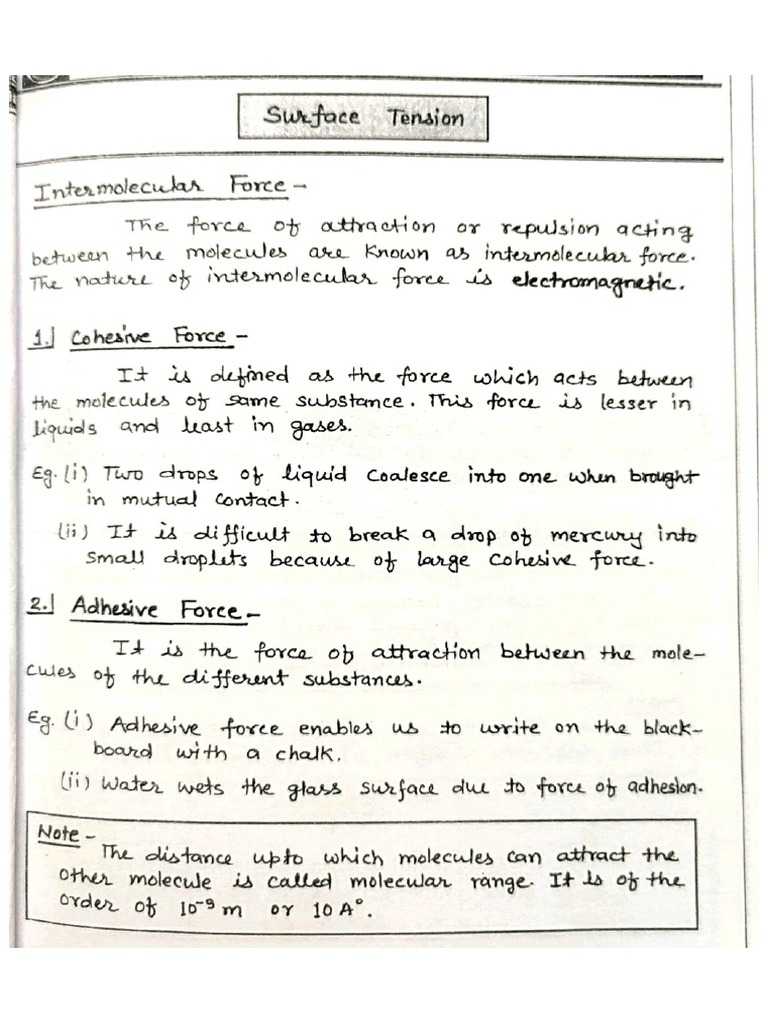 Surface Tension
Intermolecular Force -
The force of attraction or repulsion acting
between the molecules are known as intermolecular force.
The nature of intermolecular force is electromagnetic.
1.] Cohesive Force -
It is defined as the force which acts between
the molecules of same substance. This force is lesser in
liquids and least in gases.
Eg. (i) Two drops of liquid coalesce into one when brought
in mutual contact.
(ii) It is difficult to break a drop of mercury into
small droplets because of large cohesive force.
2.] Adhesive Force -
It is the force of attraction between the mole-
cules of the different substances.
Eg. (i) Adhesive force enables us to write on the black-
board with a chalk.
(ii) Water wets the glass surface due to force of adhesion.
Note -
The distance upto which molecules can attract the
other molecule is called molecular range. It is of the
order of 10⁻⁹ m or 10 A°.